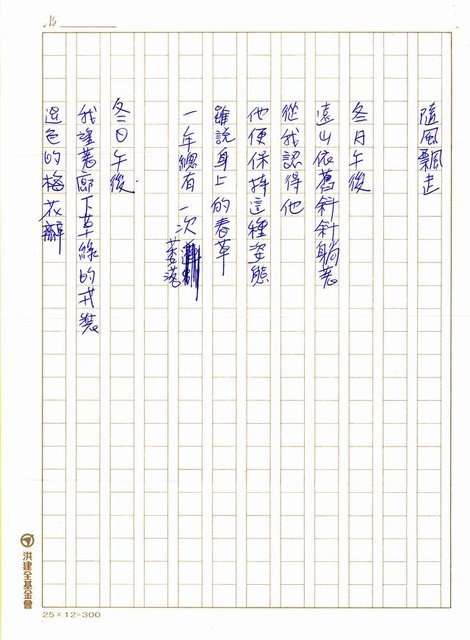 No
隨風飄走
冬日午後
遠山依舊斜斜躺著
從我認得他
他便保持這種姿態
雖說身上的春草
一年總有一次
萎落
冬日午後
我望著廊下草綠的戎裝
退色的梅花瓣
洪建全基金會
25×12=300